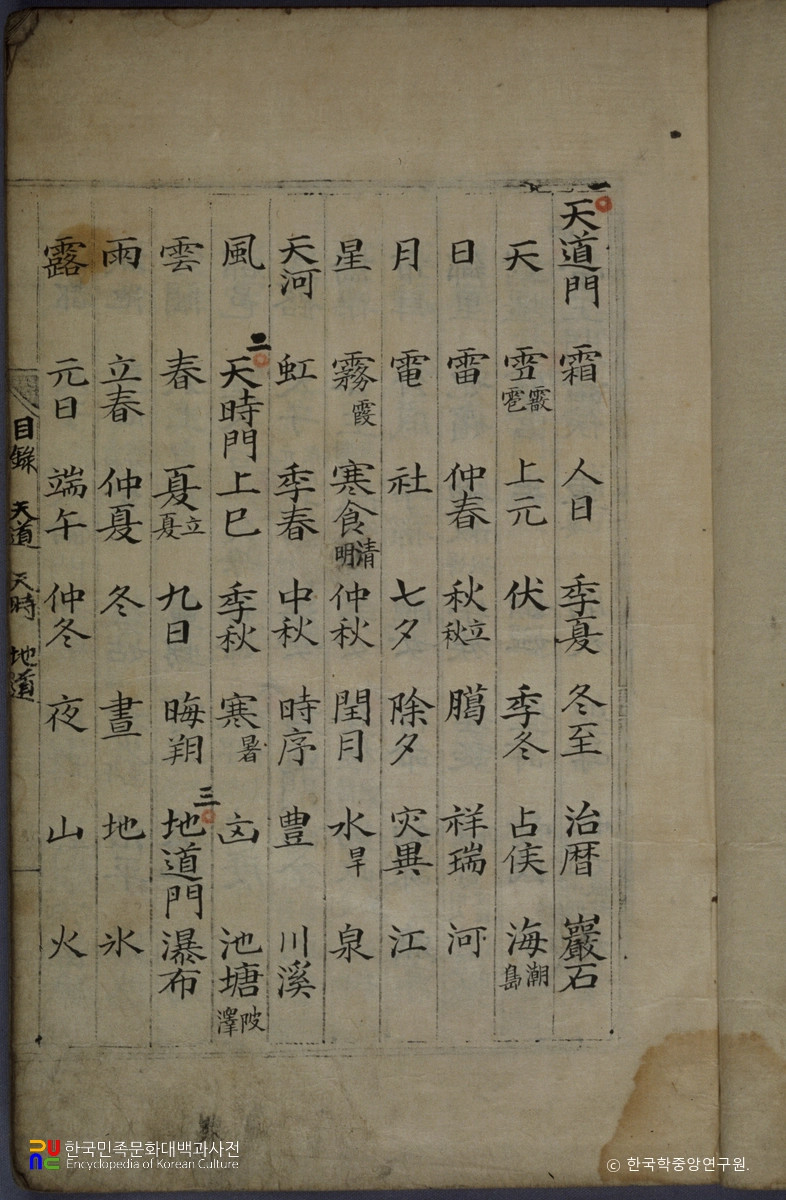 一
天道門 霜 人日 季夏 冬至 治暦 巖石
天 雪霰雹 上元 伏 季冬 占候 海潮島
日 雷 仲春 秋立秋 臈 祥瑞 河
月 電 社 七夕 除夕 灾異 江
星 霧霞 寒食清明 仲秋 閏月 水旱 泉
天河 虹 季春 中秋 時序 豊 川溪
風 二 天時門 上巳 季秋 寒暑 凶 池塘陂澤
雲 春 夏立夏 九日 晦朔 三 地道門 瀑布
雨 立春 仲夏 冬 晝 地 氷
露 元日 端午 仲冬 夜 山 火
目錄 天道 天時 地道
한국민족문화대백과사전
Encyclopedia of Korean Culture
ⓒ 한국학중앙연구원.